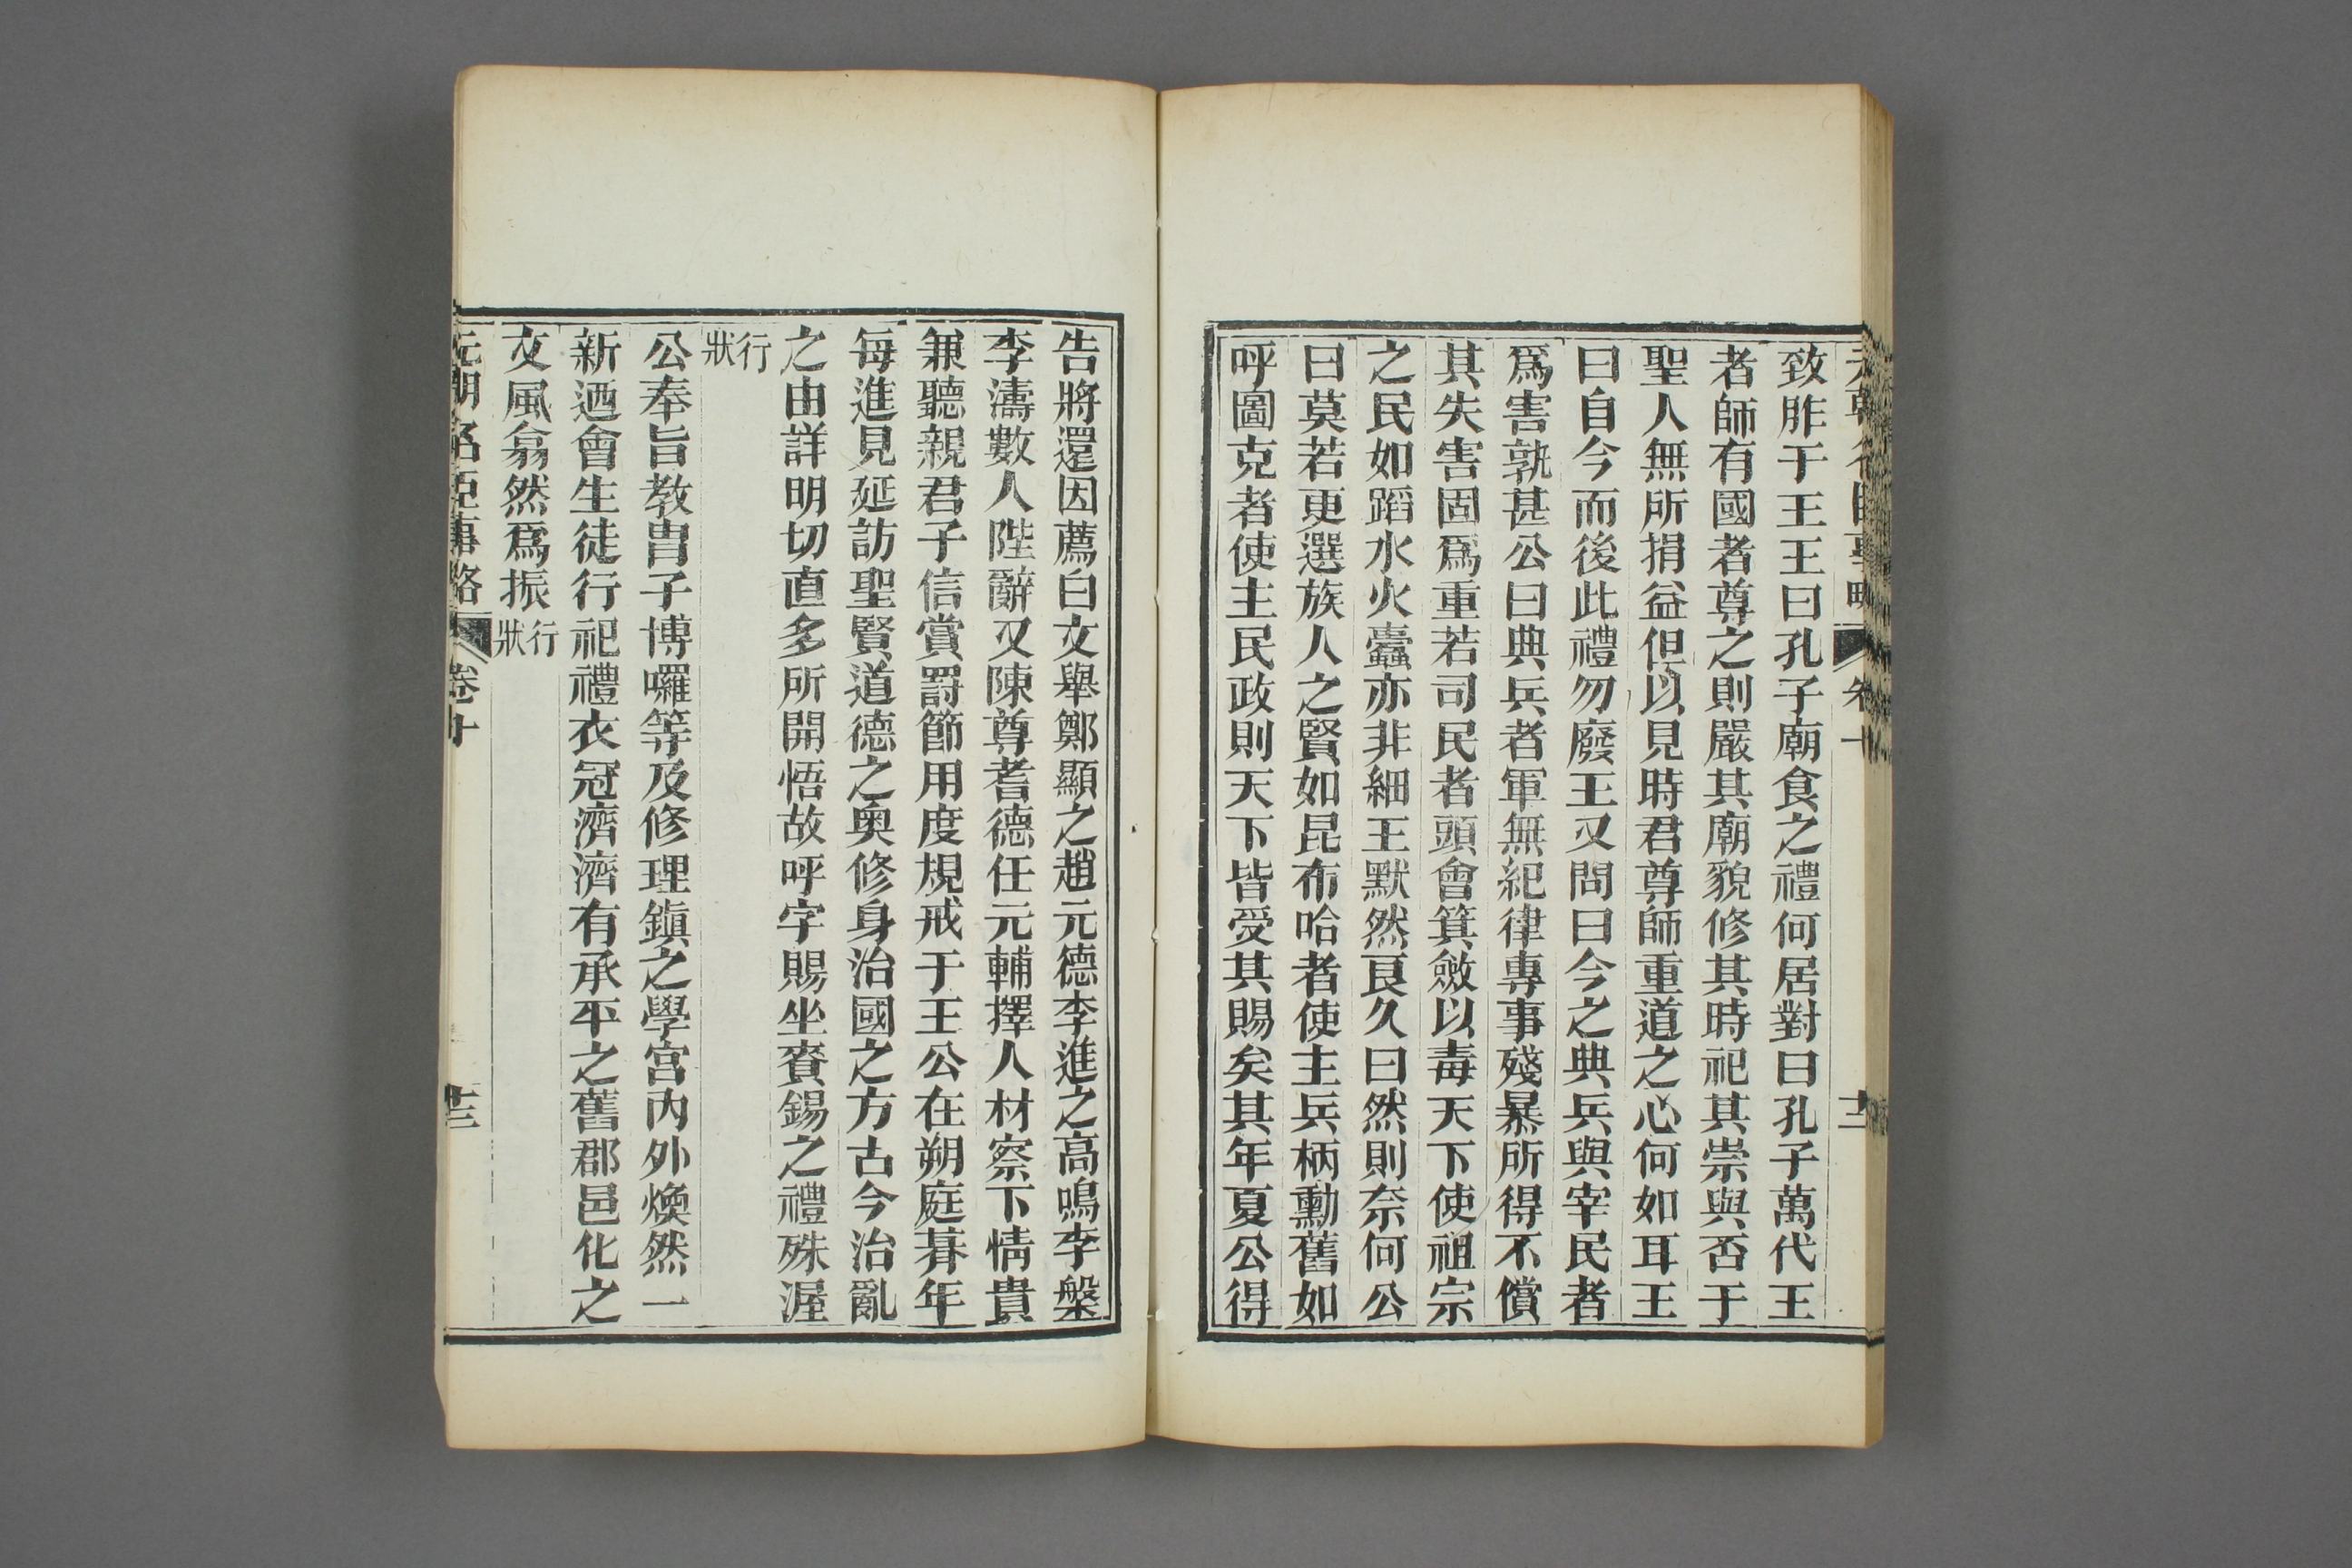 致胙于王王曰孔子廟食之禮何居對曰孔子萬代王
者師有國者尊之則嚴其廟貌修其時祀其崇與否于
聖人無所捐益但以見時君尊師重道之心何如耳王
曰自今而後此禮勿廢王又問曰今之典兵與宰民者
爲害孰甚公曰典兵者軍無紀律專事殘暴所得不償
其失害固爲重若司民者頭會箕斂以毒天下使祖宗
之民如蹈水火蠹亦非細王默然良久曰然則奈何公
曰莫若更選族人之賢如昆布哈者使主兵柄勳舊如
呼圖克者使主民政則天下皆受其賜矣其年夏公得
告將還因薦白文舉鄭顯之趙元德李進之高鳴李槃
李濤數人陛辭又陳尊耆德任元輔擇人材察下情貴
兼聽親君子信賞罰節用度規戒于王公在朔庭朞年
每進見延訪聖賢道德之奥修身治國之方古今治亂
之由詳明切直多所開悟故呼字賜坐賚錫之禮殊渥
行狀
公奉旨教冑子博囉等及修理鎮之學宫内外煥然一
新迺會生徒行祀禮衣冠濟濟有承平之舊郡邑化之
文風翕然爲振行狀
元朝名臣事略 卷十 十三